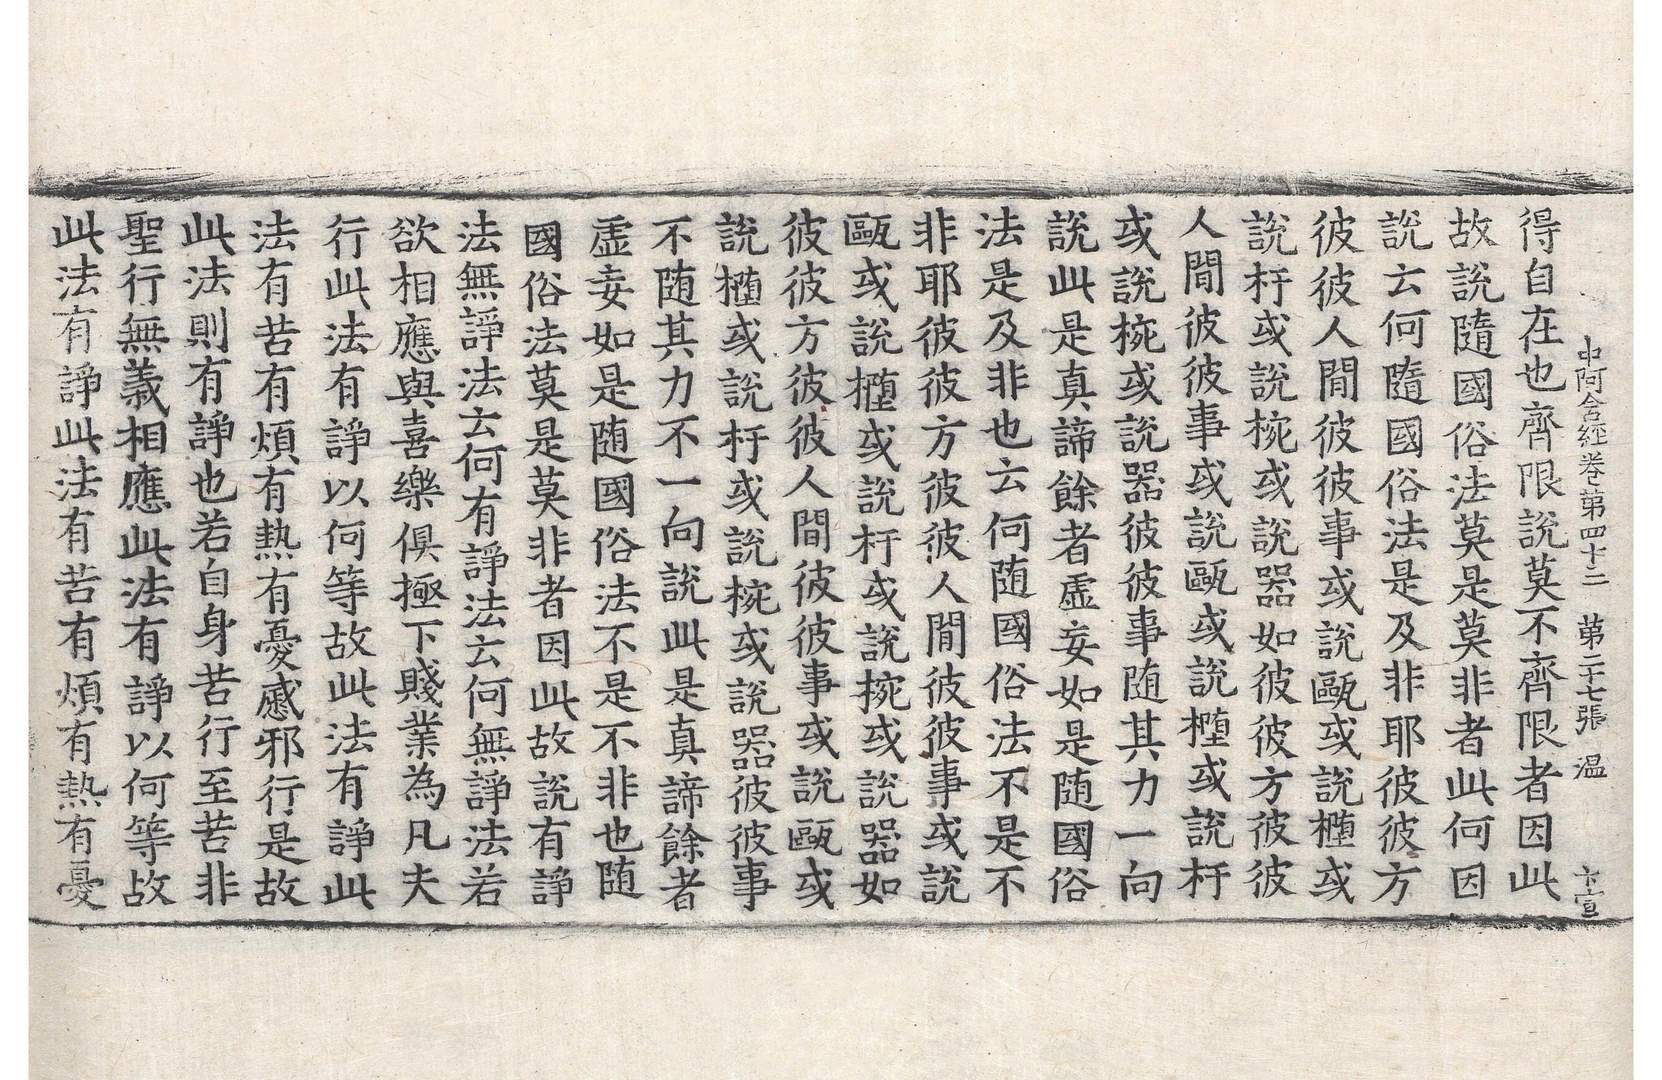 中阿含經卷第四十三 第二十七張 溫 卞宣
得自在也齊限說莫不齊限者因此
故說隨國俗法莫是莫非者此何因
說云何隨國俗法是及非耶彼彼方
彼彼人間彼彼事或說甌或說或
說杅或說椀或說器如彼彼方彼彼
人間彼彼事或說甌或說或說杅
或說椀或說器彼彼事随其力一向
說此是真諦餘者虛妄如是随國俗
法是及非也云何随國俗法不是不
非耶彼彼方彼彼人間彼彼事或說
甌或說或說杅或說椀或說器如
彼彼方彼彼人間彼彼事或說甌或
說或說杅或說椀或說器彼彼事
不随其力不一向說此是真諦餘者
虛妄如是随國俗法不是不非也随
國俗法莫是莫非者因此故說有諍
法無諍法云何有諍法云何無諍法若
欲相應與喜樂俱極下賤業為凡夫
行此法有諍以何等故此法有諍此
法有苦有煩有熱有憂慼邪行是故
此法則有諍也若自身苦行至苦非
聖行無義相應此法有諍以何等故
此法有諍此法有苦有煩有熱有憂